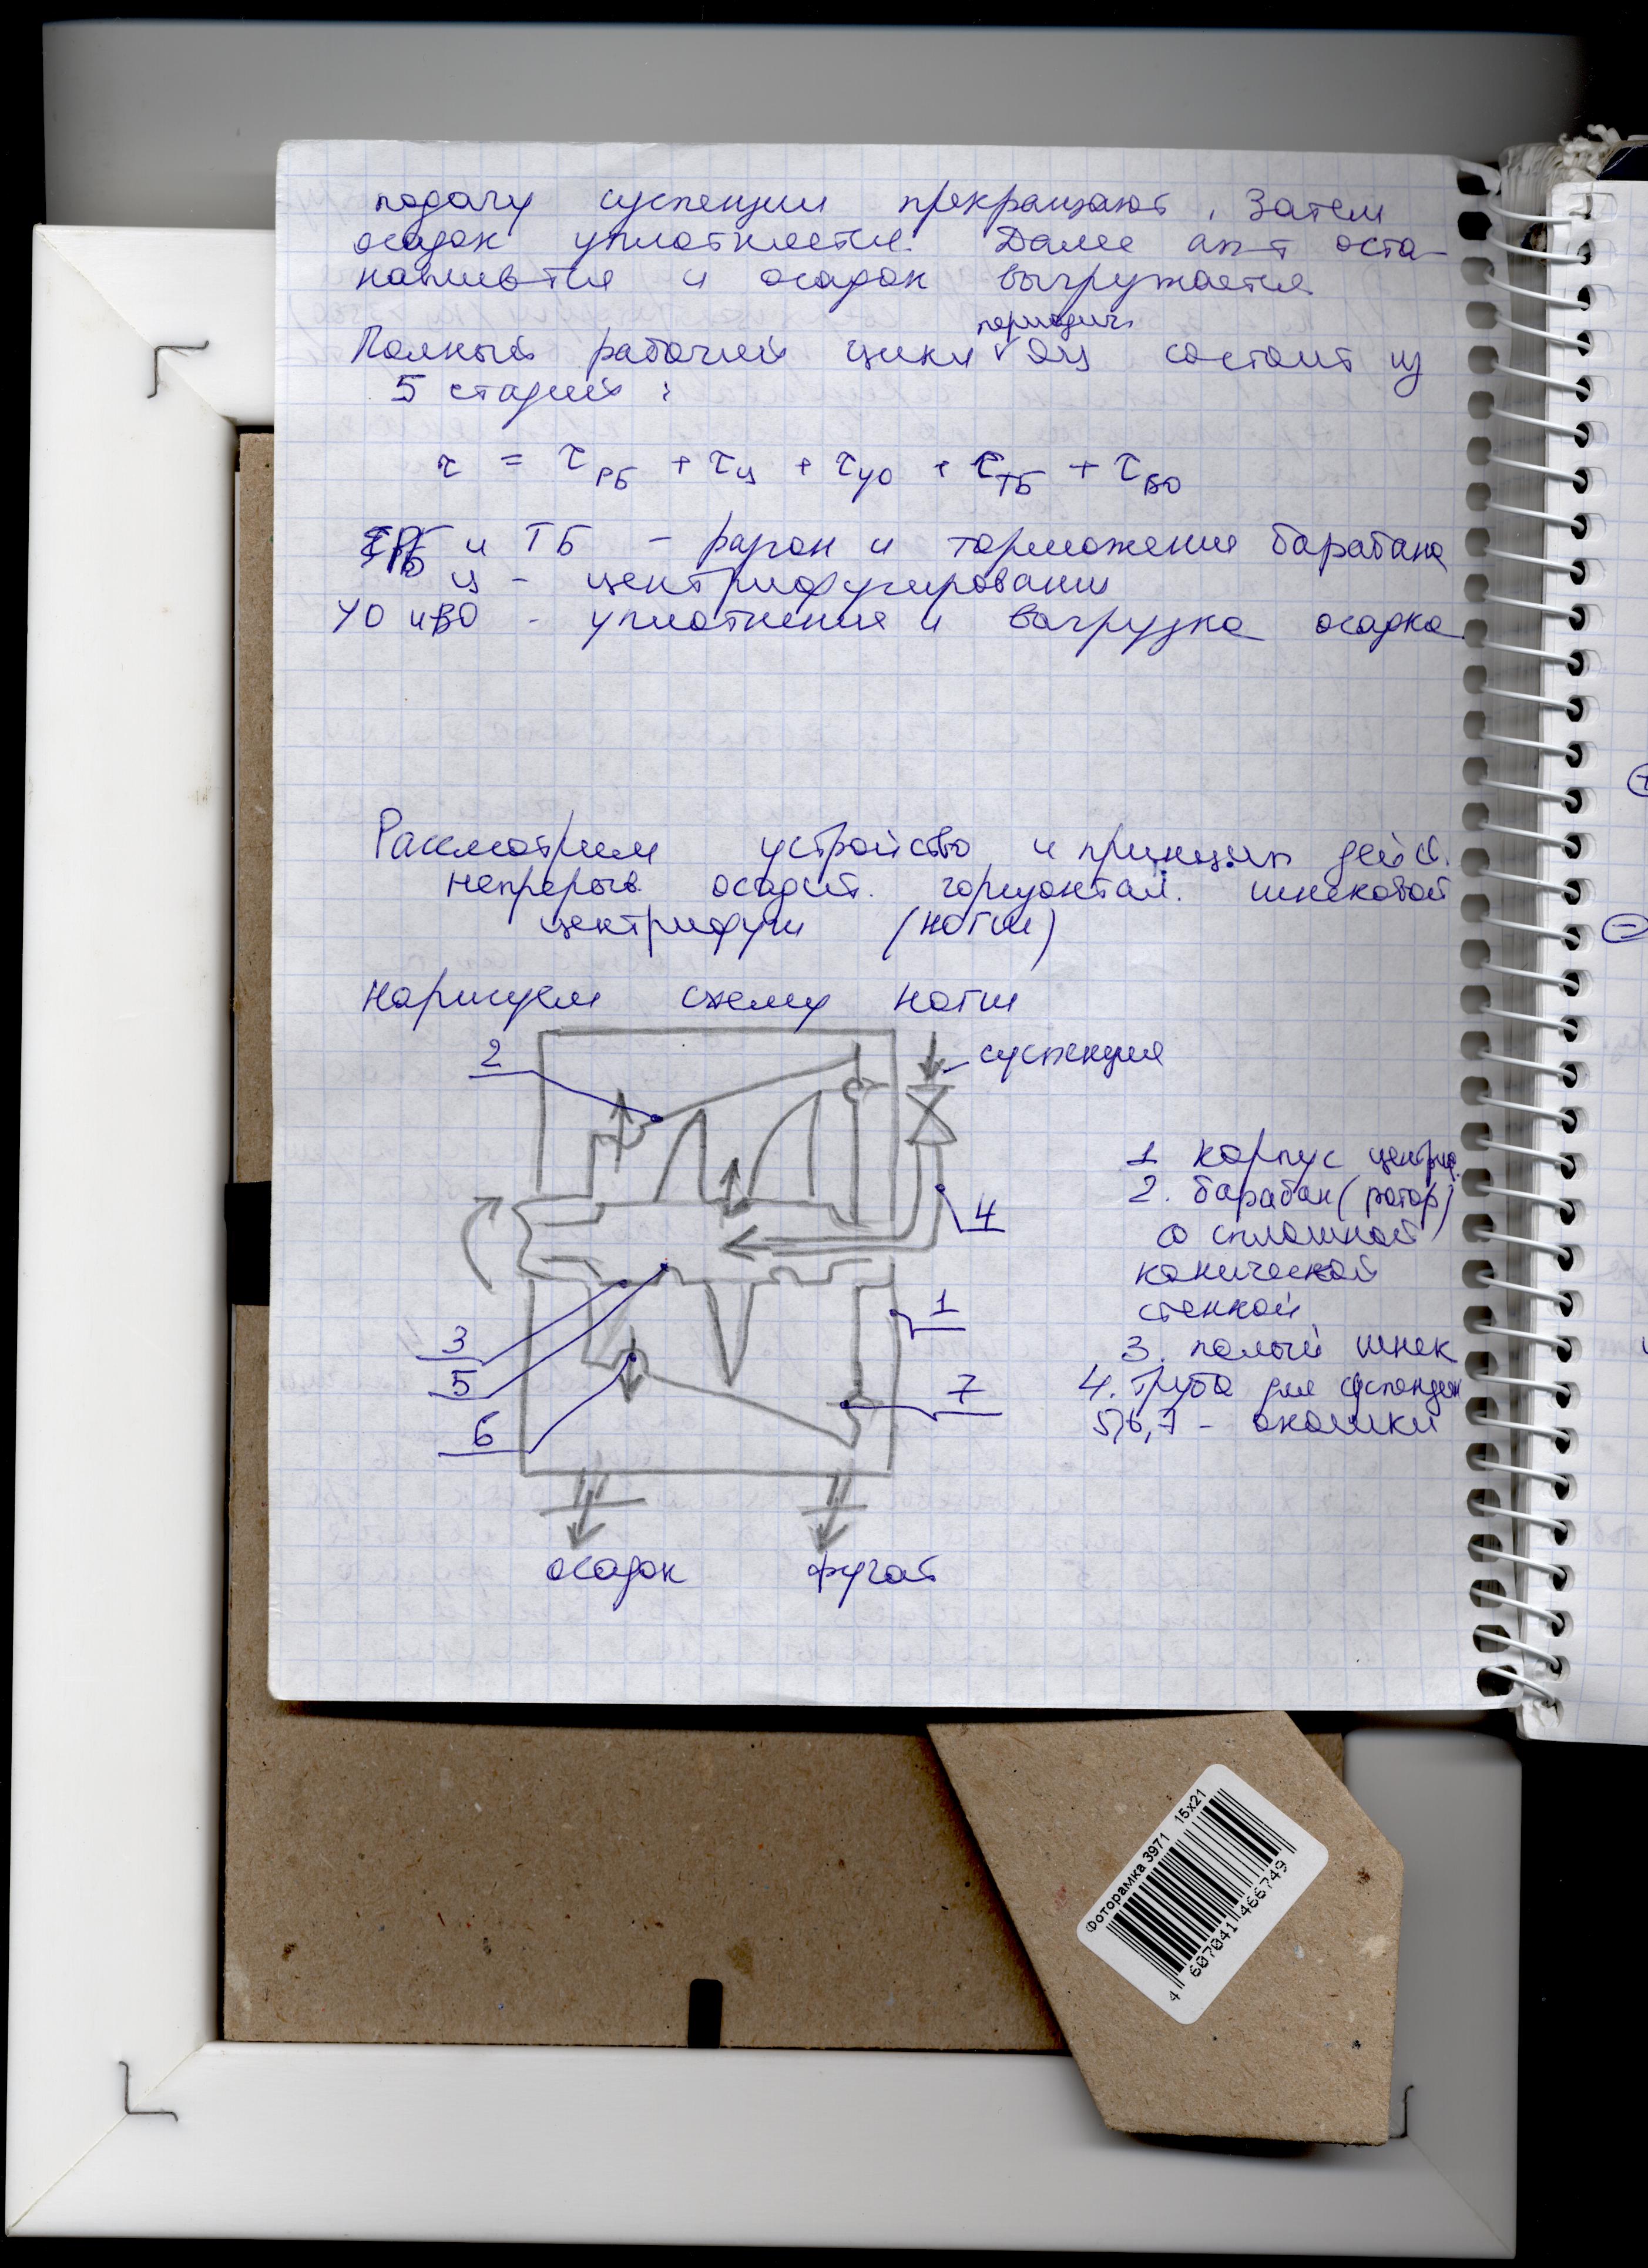 подачу суспензии прекращают. Затем
осадок уплотняется. Далее апт оста-
навливтся и осадок выгружается.
периодич.
Полный рабочий цикл ОЦ состоит из
5 стадий:
τ = τРБ + τЦ + τУО + τТБ + τВО
РБ и ТБ – разгон и торможение барабана
Ц – центрифугировани
УО и ВО – уплотнения и выгрузка осадка
Рассмотрим устройство и принцип дейст.
непрерыв. осадит. горизонтал. шнековой
центрифуги (НОГШ)
Нарисуем схему НОГШ
2
суспензия
4
3
5
6
1
7
осадок фугат
1 корпус центриф.
2. барабан (ротор)
со сплошной
конической
стенкой
3. полый шнек
4. Труба для суспензии
5,6,7 – окошки
Фоторамка 3971 15x21
4 607041 466749
+
−